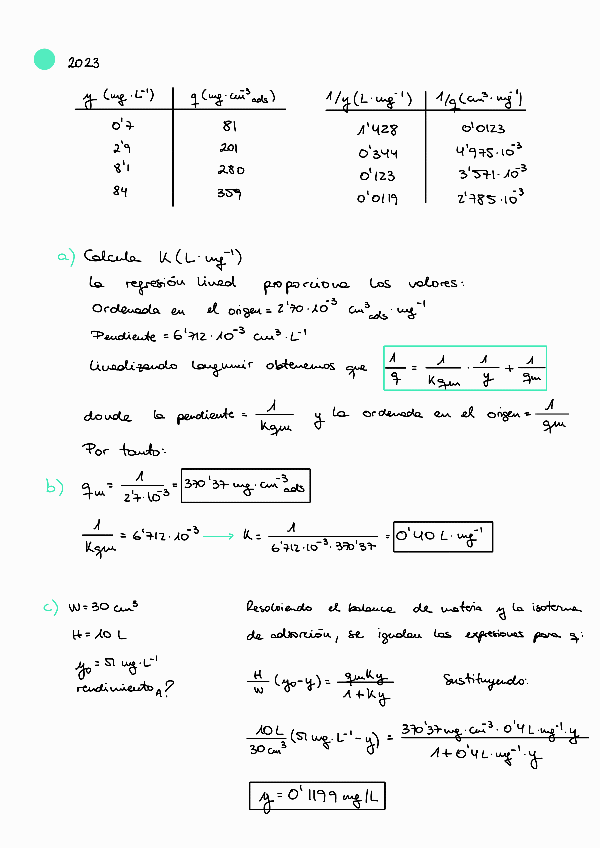 2023
y (mg·L⁻¹) | q (mg·cm⁻³ads) | 1/y (L·mg⁻¹) | 1/q (cm³·mg⁻¹)
0'7 | 81 | 1'428 | 0'0123
2'9 | 201 | 0'344 | 4'975·10⁻³
8'1 | 280 | 0'123 | 3'571·10⁻³
84 | 359 | 0'0119 | 2'785·10⁻³
a) Calcula K (L·mg⁻¹)
La regresión lineal proporciona los valores:
Ordenada en el origen = 2'70·10⁻³ cm³ads·mg⁻¹
Pendiente = 6'712·10⁻³ cm³·L⁻¹
Linealizando Langmuir obtenemos que 1/q = 1/Kqm · 1/y + 1/qm
donde la pendiente = 1/Kqm y la ordenada en el origen = 1/qm
Por tanto:
b) qm = 1/2'7·10⁻³ = 370'37 mg·cm⁻³ads
1/Kqm = 6'712·10⁻³ → K = 1/6'712·10⁻³·370'37 = 0'40 L·mg⁻¹
c) W = 30 cm³
H = 10 L
y₀ = 51 mg·L⁻¹
rendimiento A?
Resolviendo el balance de materia y la isoterma
de adsorción, se igualan las expresiones para q:
H/W (y₀-y) = qmKy/1+Ky Sustituyendo:
10L/30cm³ (51 mg·L⁻¹-y) = 370'37 mg·cm⁻³·0'4L·mg⁻¹·y/1+0'4L·mg⁻¹·y
y = 0'1199 mg/L